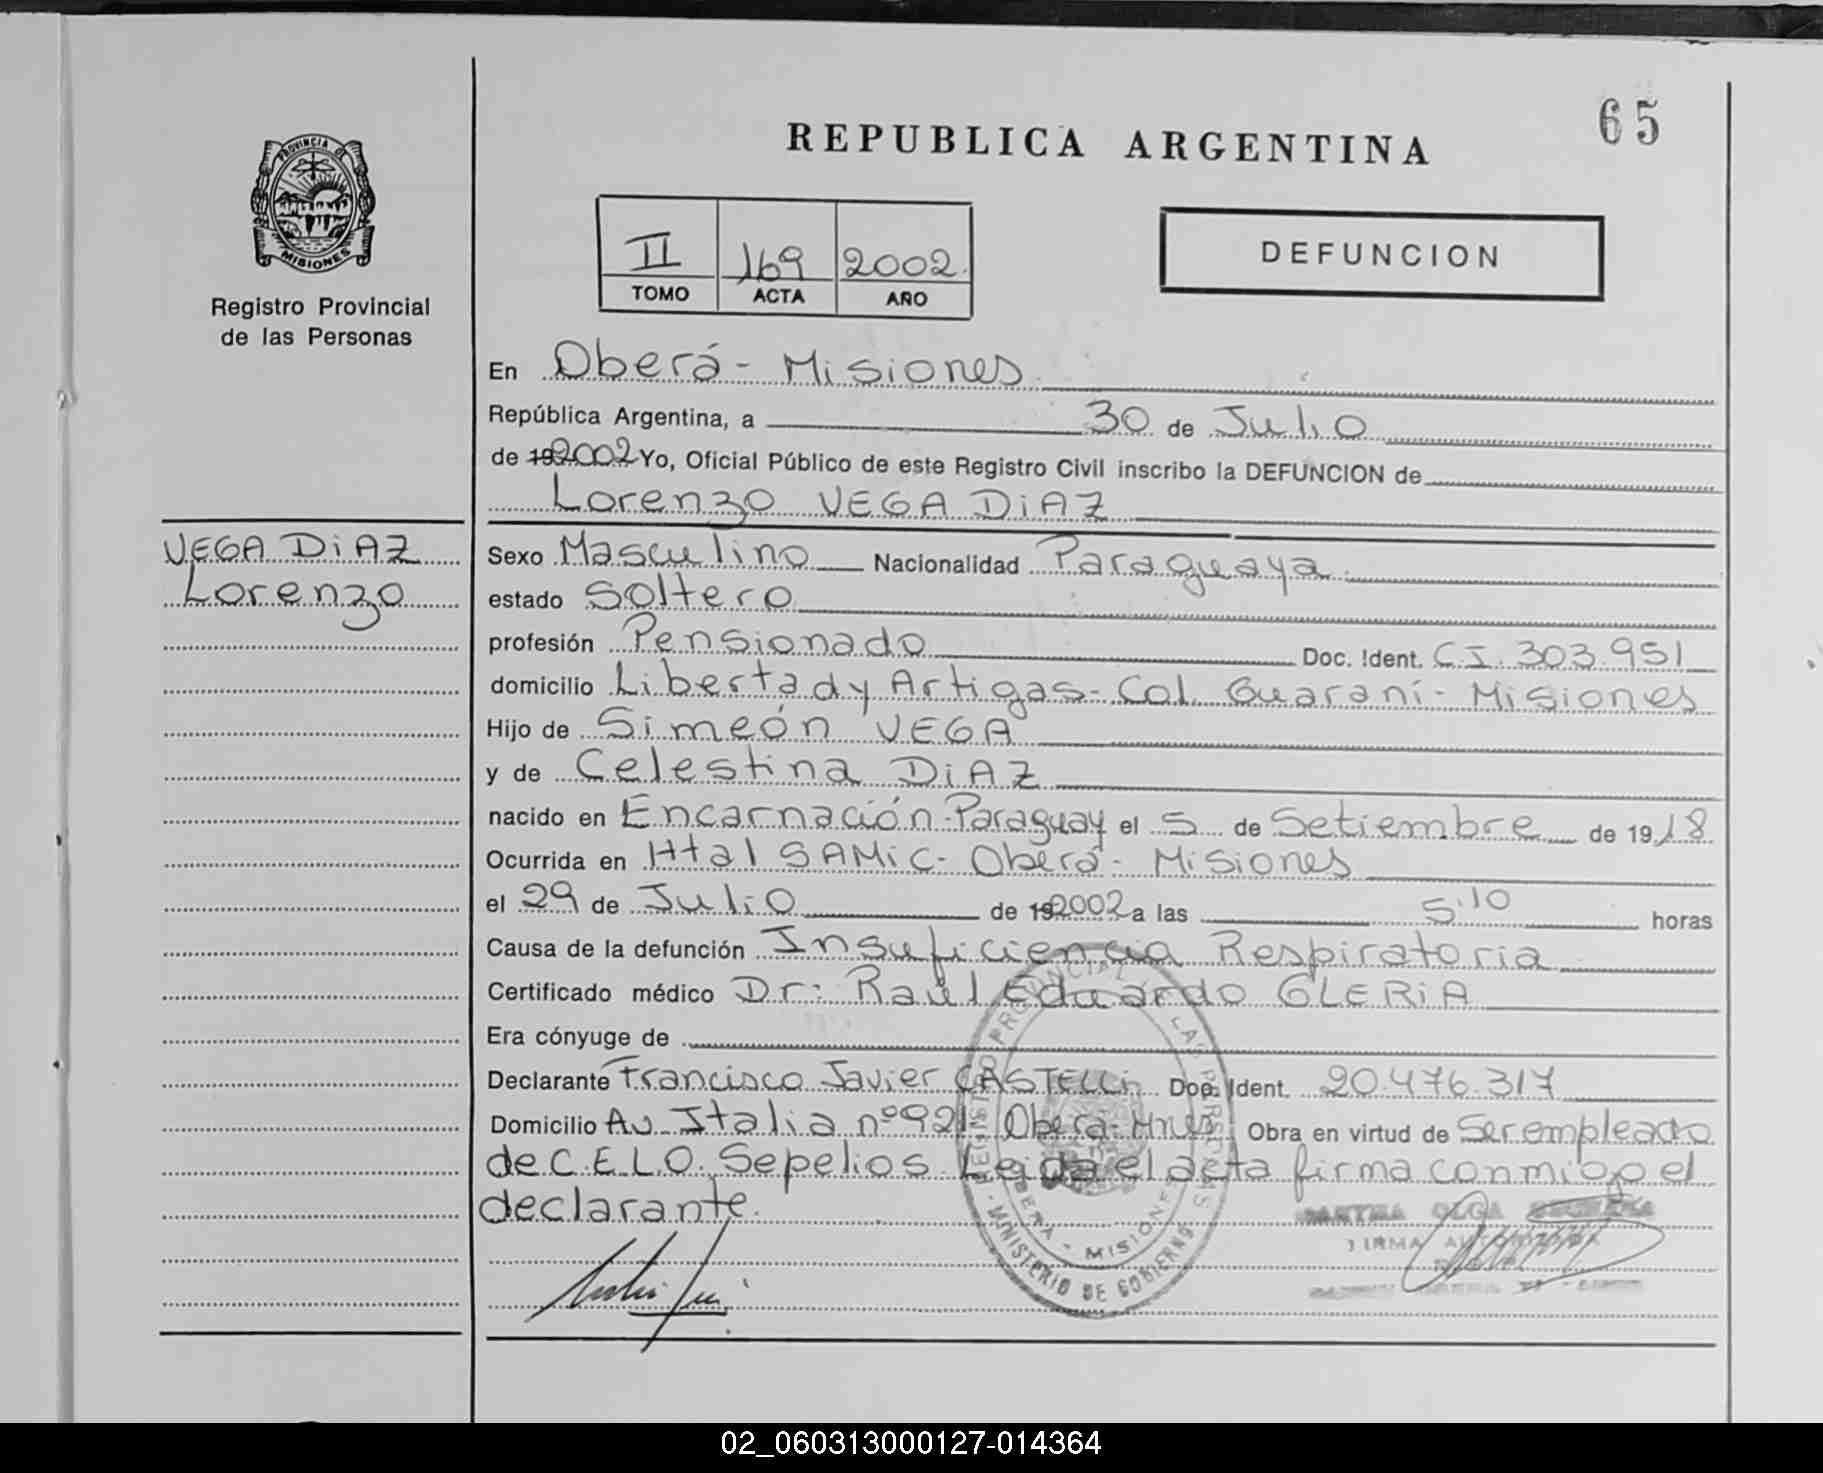 65
REPUBLICA ARGENTINA
PROVINCIA DE
MISIONES
Registro Provincial
de las Personas
II 169 2002
TOMO ACTA AÑO
DEFUNCION
En Oberá - Misiones
República Argentina, a 30 de Julio
de 19 2002 Yo, Oficial Público de este Registro Civil inscribo la DEFUNCION de
Lorenzo VEGA DiAZ
VEGA DiAZ
Lorenzo
Sexo Masculino Nacionalidad Paraguaya
estado Soltero
profesión Pensionado Doc. Ident. C.I. 303.951
domicilio Libertad y Artigas - Col. Guaraní - Misiones
Hijo de Simeón VEGA
y de Celestina DiAZ
nacido en Encarnación - Paraguay el 5 de Setiembre de 1918
Ocurrida en Htal SAMiC - Oberá - Misiones
el 29 de Julio de 19 2002 a las 5:10 horas
Causa de la defunción Insuficiencia Respiratoria
Certificado médico Dr: Raúl Eduardo GLERiA
Era cónyuge de
Declarante Francisco Javier CASTELLi Doc. Ident. 20.476.317
Domicilio Av. Italia nº 921 Oberá - Mnes Obra en virtud de Ser empleado
de C.E.L.O. Sepelios Leida el acta firma conmigo el
declarante.
REGISTRO PROVINCIAL DE LAS PERSONAS
OBERA - MISIONES
MINISTERIO DE GOBIERNO
OLGA
FIRMA AUTORIZADA
02_060313000127-014364